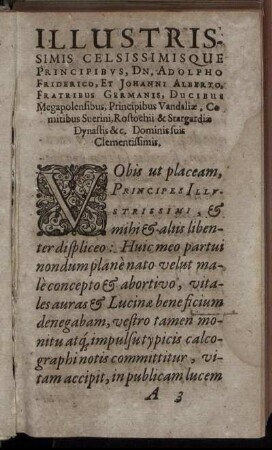 ILLUSTRIS-
SIMIS CELSISSIMISQUE
PRINCIPIBVS, DN, ADOLPHO
FRIDERICO, ET JOHANNI ALBERTO,
FRATRIBUS GERMANIS, DUCIBUS
Megapolensibus, Principibus Vandaliæ, Co
mitibus Suerini, Rostochii & Stargardiæ
Dynastis &c. Dominis suis
Clementissimis.
VObis ut placeam,
PRINCIPES ILLV-
STRISSIMI, &
mihi & aliis liben-
ter displiceo: Huic meo partui
nondum planè nato velut ma-
lè concepto & abortivo, vita-
les auras & Lucinæ beneficium
denegabam, vestro tamen mo-
nitu atq; impulsu typicis calco-
graphi notis committitur, vi-
tam accipit, in publicam lucem
A 3